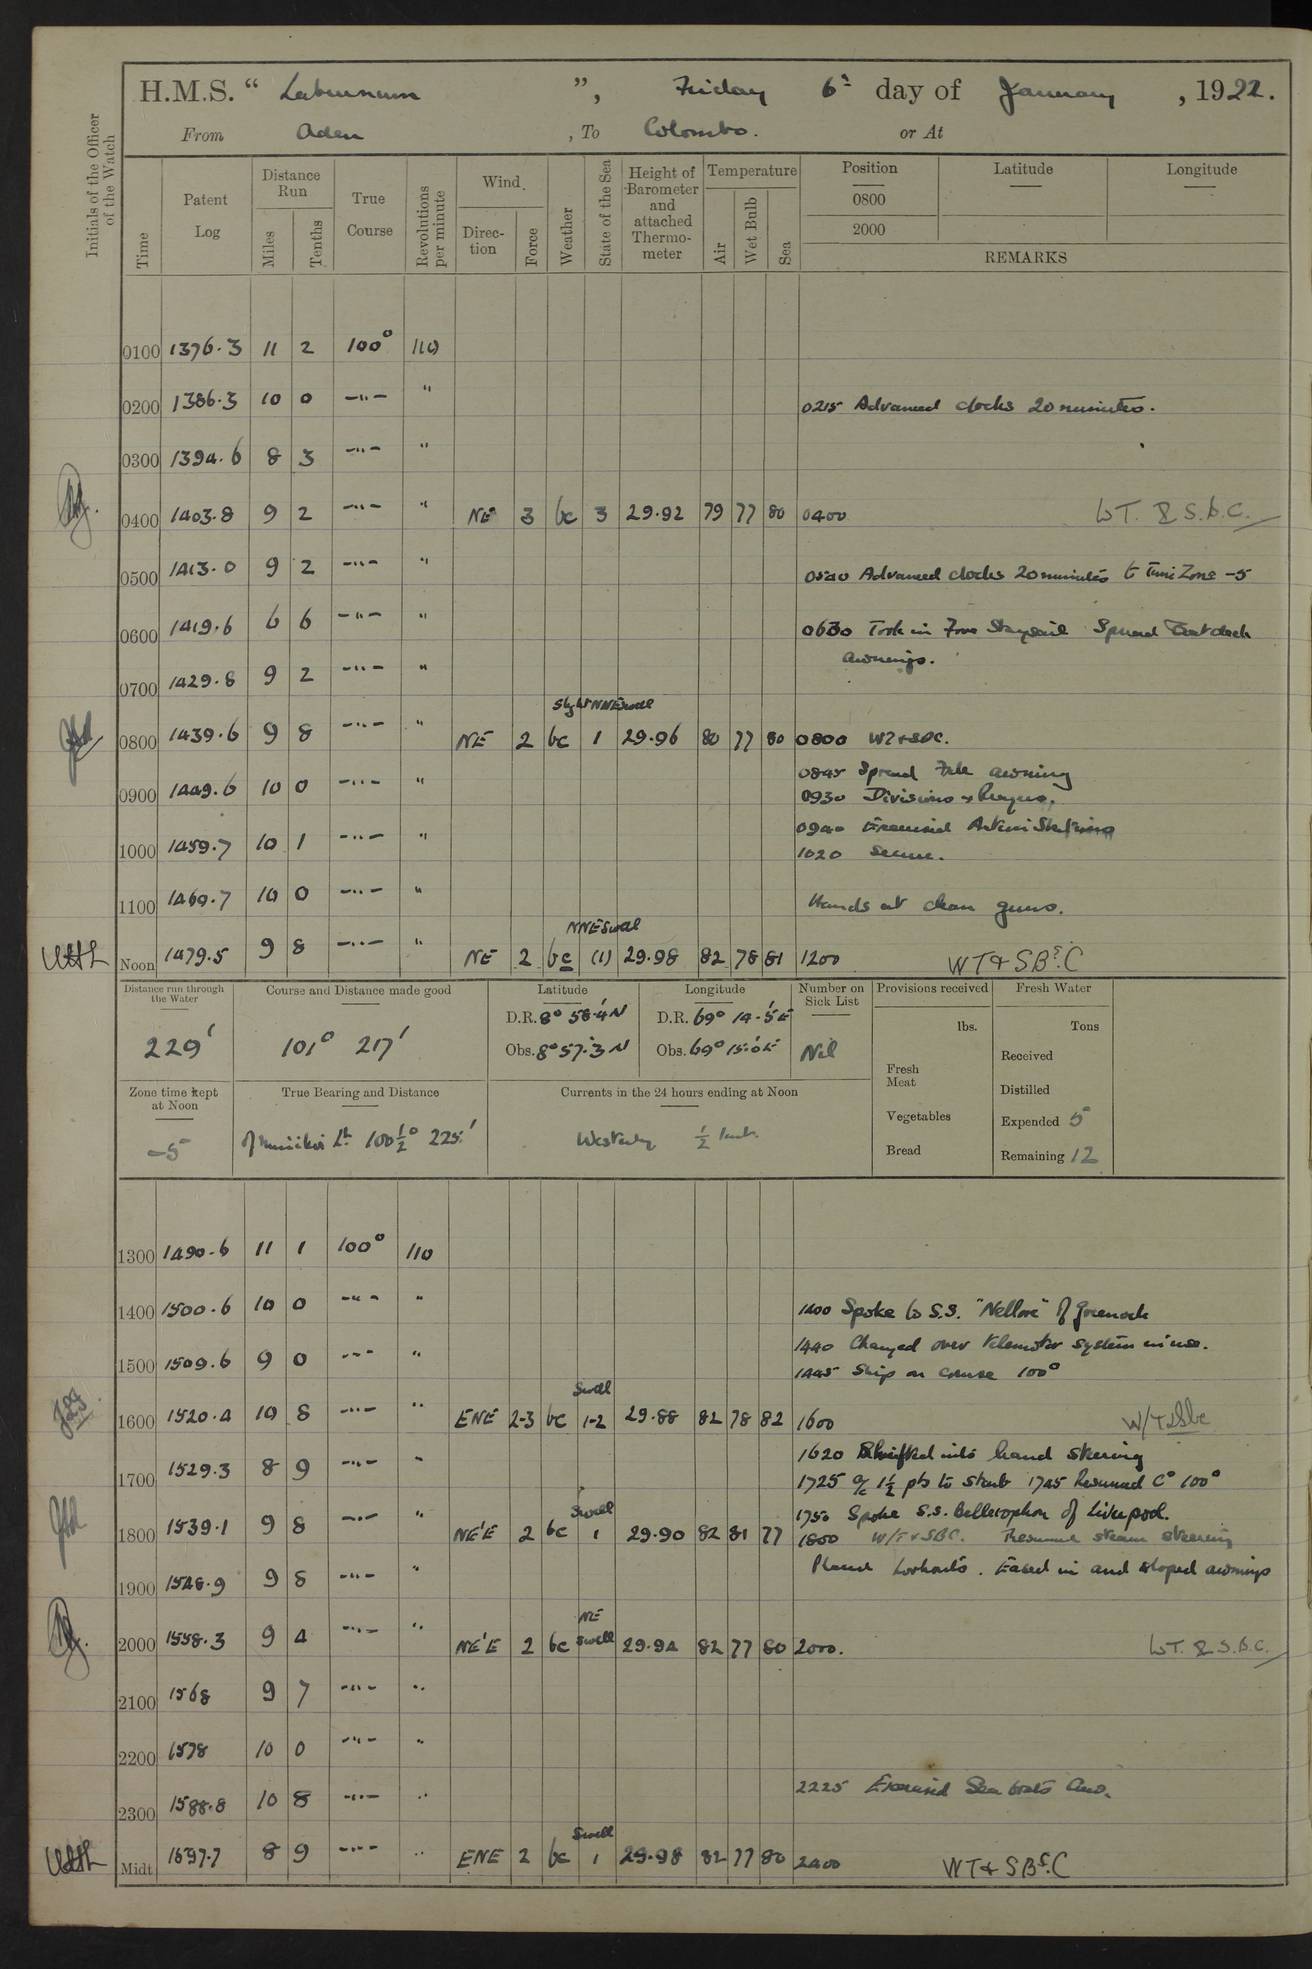 H.M.S. "Laburnum", Friday 6th day of January, 1922.
From Aden, To Colombo. or At
Initials of the Officer of the Watch
Time
Patent Log
Distance Run
Miles
Tenths
True Course
Revolutions per minute
Wind.
Direction
Force
Weather
State of the Sea
Height of Barometer and attached Thermometer
Temperature
Air
Wet Bulb
Sea
Position Latitude Longitude
0800
2000
REMARKS
0100 1376.3 11 2 100° 110
0200 1386.3 10 0 —"— " 0215 Advanced clocks 20 minutes.
0300 1394.6 8 3 —"— "
0400 1403.8 9 2 —"— " NE 3 bc 3 29.92 79 77 80 0400 WT. & S.b.C.
0500 1413.0 9 2 —"— " 0540 Advanced clocks 20 minutes to Time Zone -5
0600 1419.6 6 6 —"— " 0630 Took in Fore Staysail Spread Boat deck
awnings.
0700 1429.8 9 2 —"— "
Slight NNE swell
0800 1439.6 9 8 —"— " NE 2 bc 1 29.96 80 77 80 0800 WT & SBC.
0845 Spread awning
0900 1449.6 10 0 —"— " 0930 Divisions & Prayers.
0940 Exercised Action Stations
1000 1459.7 10 1 —"— " 1020 Secure.
1100 1469.7 10 0 —"— " Hands at clean guns.
NNE Swell
Noon 1479.5 9 8 —"— " NE 2 bc (1) 29.98 82 78 81 1200 WT & SBs.C
Distance run through the Water Course and Distance made good Latitude Longitude Number on Sick List Provisions received Fresh Water
229' 101° 217'
D.R. 8° 58.4 N D.R. 69° 14.5 E
Obs. 8° 57.3 N Obs. 69° 15.0 E Nil
lbs. Tons
Fresh Meat
Vegetables
Bread
Received
Distilled
Expended 5
Remaining 12
Zone time kept at Noon True Bearing and Distance Currents in the 24 hours ending at Noon
-5 of Minikoi Lt 100½° 225' Westerly ½ knot.
1300 1490.6 11 1 100° 110
1400 1500.6 10 0 —"— " 1400 Spoke to S.S. "Nellore" of Greenock
1440 Changed over telemotor system in use.
1500 1509.6 9 0 —"— " 1445 Ship on course 100°
Swell
1600 1520.4 10 8 —"— " ENE 2-3 bc 1-2 29.88 82 78 82 1600 W/T & Sbc
1620 Shifted into hand steering
1700 1529.3 8 9 —"— " 1725 a/c 1½ pts to starb 1745 Resumed C° 100°
Swell
1750 Spoke S.S. Bellerophon of Liverpool.
1800 1539.1 9 8 —"— " NE'E 2 bc 1 29.90 82 81 77 1800 W/T & SBC. Resumed steam steering
1900 1548.9 9 8 —"— " Placed lookouts. Eased in and sloped awnings
NE
2000 1558.3 9 4 —"— " NE'E 2 bc swell 29.94 82 77 80 2000. WT. & S.B.C.
2100 1568 9 7 —"— "
2200 1578 10 0 —"— "
2225 Exercised Sea boats Crew.
2300 1588.8 10 8 —"— "
Swell
Midt 1597.7 8 9 —"— " ENE 2 bc 1 29.98 82 77 80 2400 WT & SBs.C